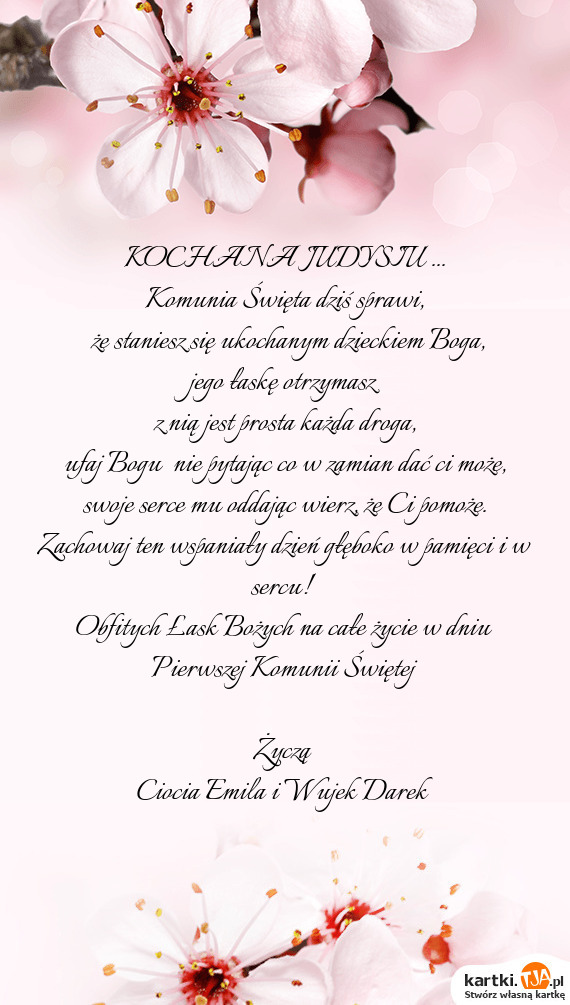 KOCHANA JUDYSIU ...
Komunia Święta dziś sprawi,
że staniesz się ukochanym dzieckiem Boga,
jego łaskę otrzymasz
z nią jest prosta każda droga,
ufaj Bogu nie pytając co w zamian dać ci może,
swoje serce mu oddając wierz, że Ci pomoże.
Zachowaj ten wspaniały dzień głęboko w pamięci i w
sercu!
Obfitych Łask Bożych na całe życie w dniu
Pierwszej Komunii Świętej
Życzą
Ciocia Emila i Wujek Darek
kartki.TJA.pl
Stwórz własną kartkę